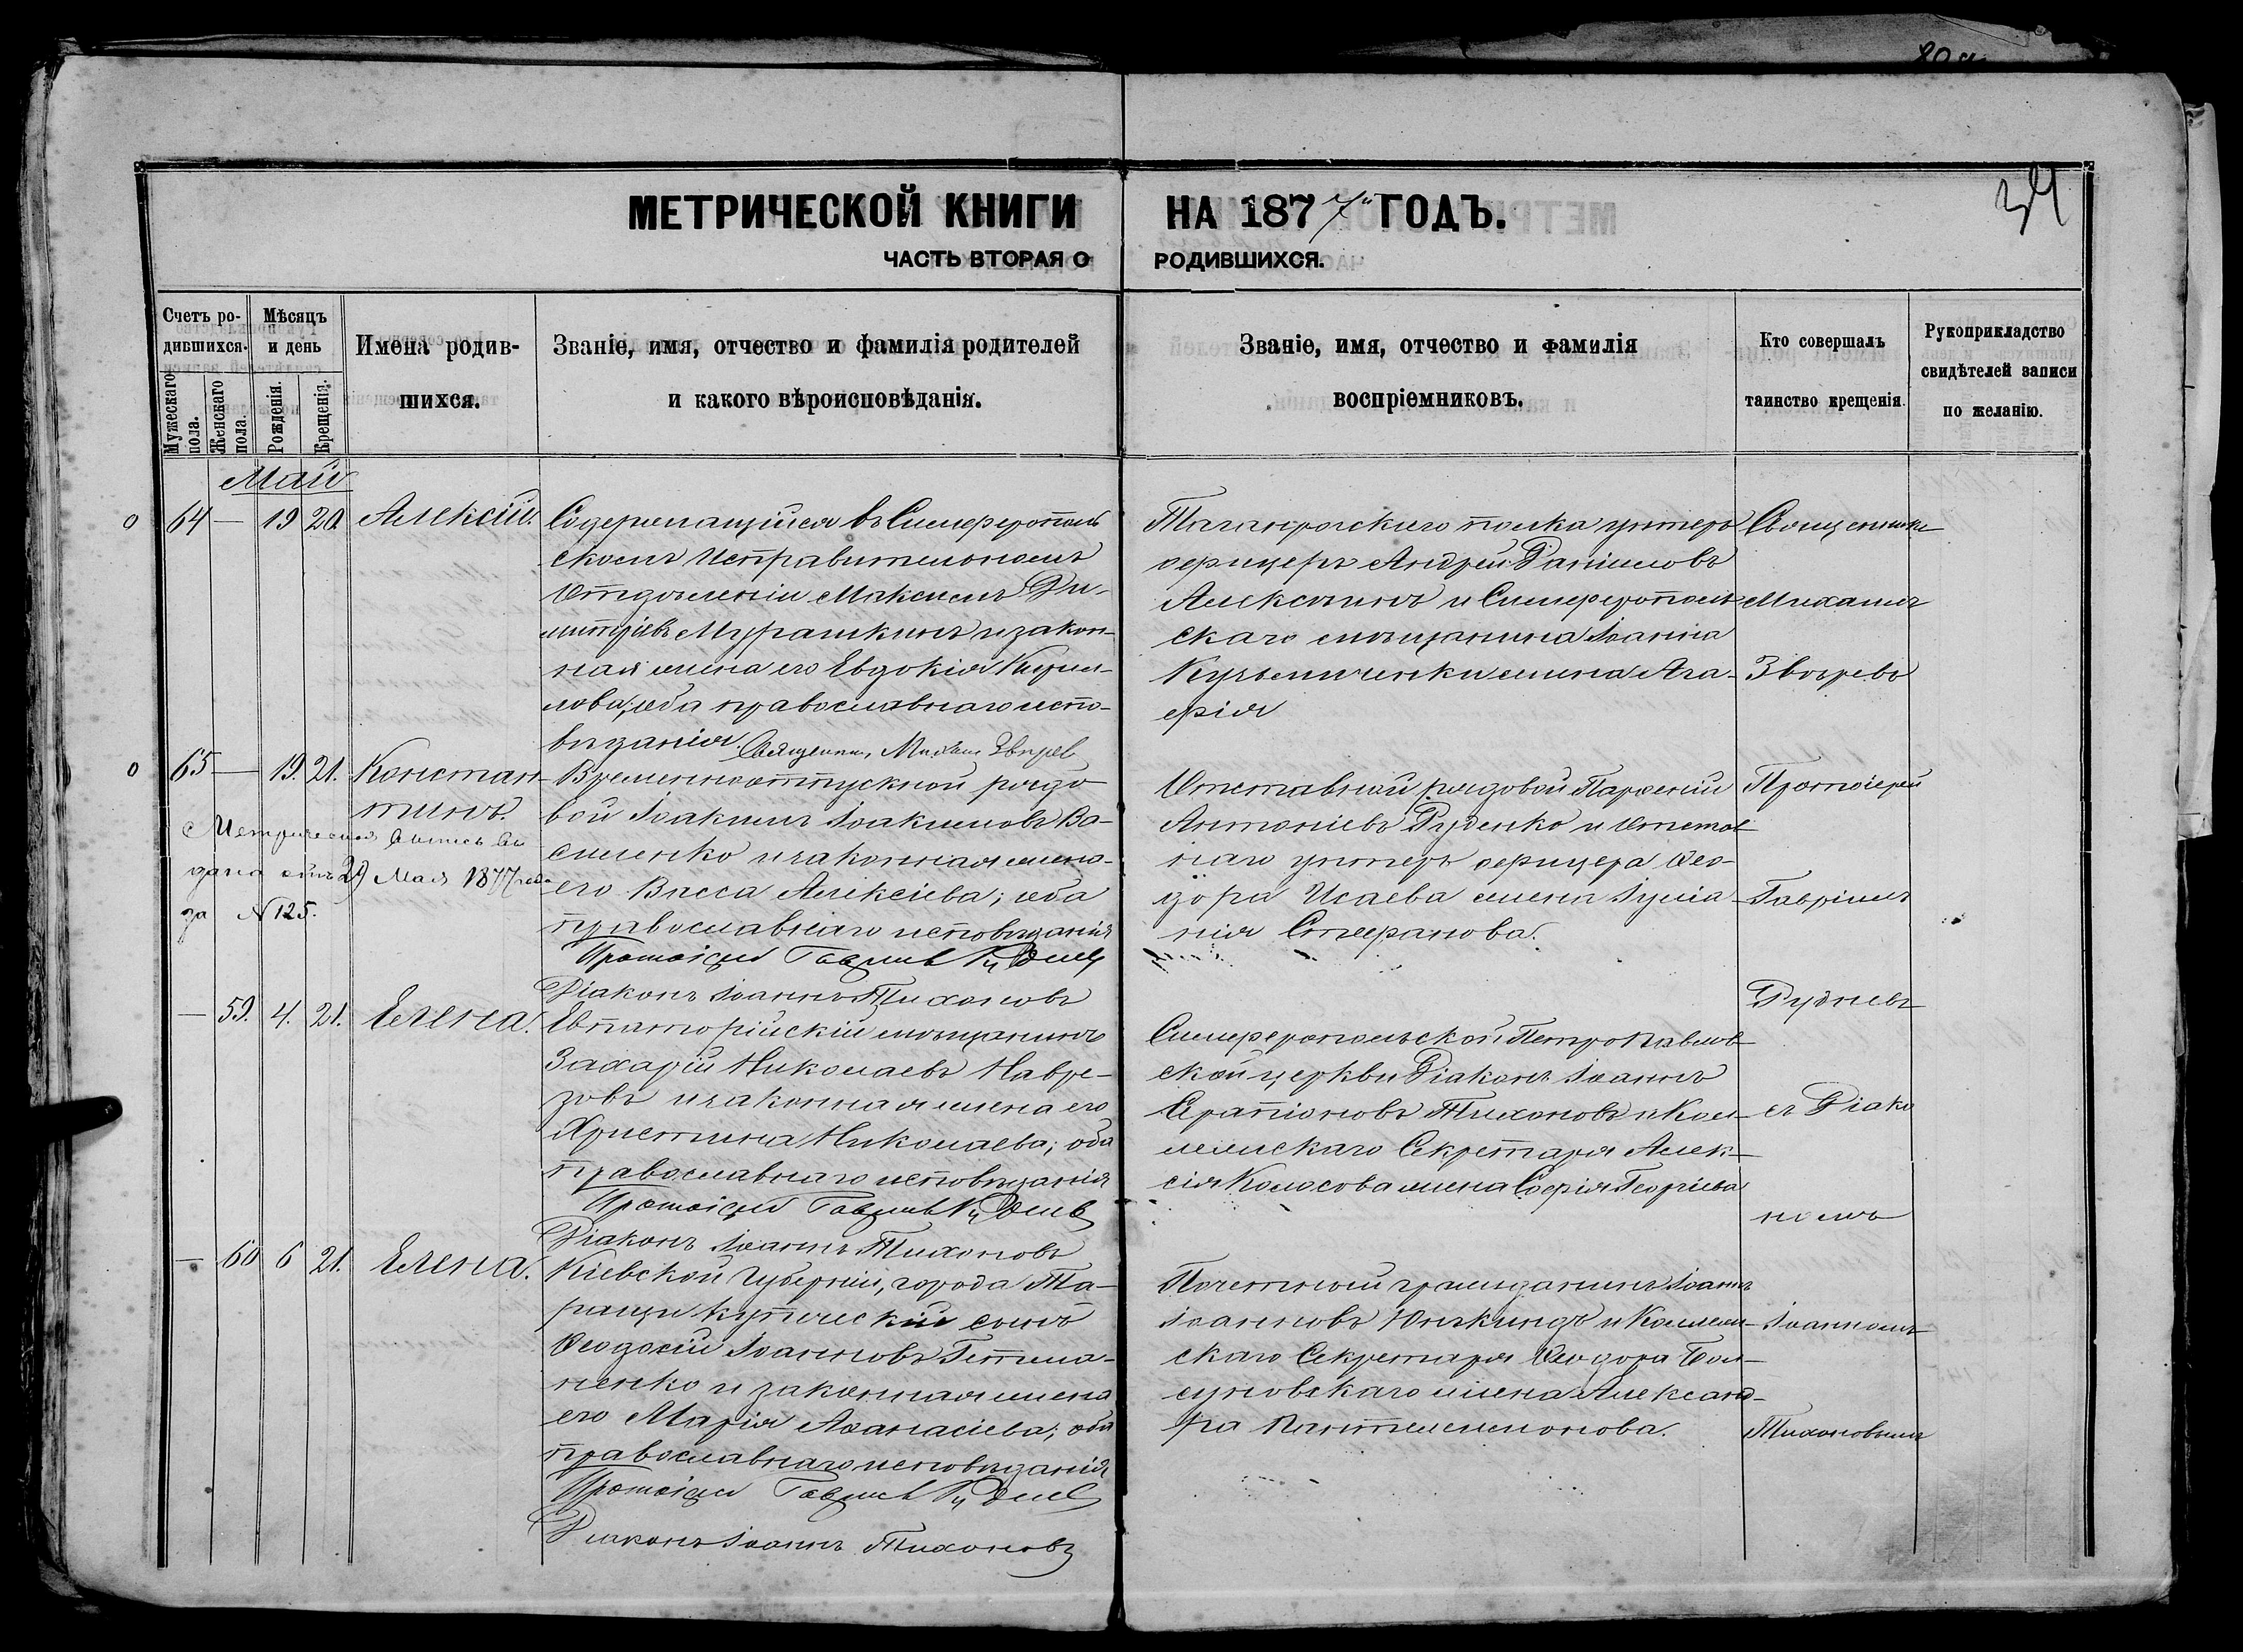 МЕТРИЧЕСКОЙ КНИГИ НА 1877 ГОДЪ.
34
ЧАСТЬ ВТОРАЯ О РОДИВШИХСЯ.
Счетъ ро-
дившихся.
Мужескаго пола.
Женскаго пола.
Мѣсяцъ
и день
Рожденія.
Крещенія.
Имена родив-
шихся.
Званіе, имя, отчество и фамилія родителей
и какого вѣроисповѣданія.
Званіе, имя, отчество и фамилія
воспріемниковъ.
Кто совершалъ
таинство крещенія.
Рукоприкладство
свидѣтелей записи
по желанію.
Май
64 — 19 20. Алексій.
Содержащійся въ Симферополь
скомъ Исправительномъ
Отдѣленіи Максимъ Ди-
митріевъ Мурашкинъ и закон-
ная жена его Евдокія Кирил-
лова; оба православнаго испо-
вѣданія. Священникъ Михаилъ Звѣревъ
Таганрогскаго полка унтеръ
офицеръ Андрей Даніиловъ
и Симферополь
скаго мѣщанина Іоанна
Кузьмиченки жена Ага-
фія
Священникъ
Михаилъ
Звѣревъ
65 — 19. 21. Констан-
тинъ.
Метрическая выпись вы
дана отъ 29 Мая 1877 года
за N 125.
Временноотпускной рядо
вой Іоакимъ Іоакимовъ Ва-
силенко и законная жена-
его Васса Алексіева; оба
православнаго исповѣданія
Протоіерей Гавріилъ Рудневъ
Діаконъ Іоаннъ Тихоновъ
Отставной рядовой Парфеній
Антоніевъ Руденко и Отстав
наго унтеръ офицера Ѳео-
дора Исаева жена Іуліа-
нія Стефанова.
Протоіерей
Гавріилъ
Рудневъ
— 59. 4. 21. Елена.
Евпаторійскій мѣщанинъ
Захарій Николаевъ Навре-
зовъ и законная жена его
Христина Николаева; оба
православнаго исповѣданія
Протоіерей Гавріилъ Рудневъ
Діаконъ Іоаннъ Тихоновъ
Симферопольской Петропавлов
ской церкви Діаконъ Іоаннъ
Серапіоновъ Тихоновъ и Кол-
лежскаго Секретаря Алек-
сія Колосова жена Софія Георгіева
съ Діако
номъ
— 60 6 21. Елена.
Кіевской Губерніи, города Та-
ращи купеческій сынъ
Ѳеодосій Іоанновъ Гетма-
ненко и законная жена
его Марія Аѳанасіева; оба
православнаго исповѣданія
Протоіерей Гавріилъ Рудневъ
Діаконъ Іоаннъ Тихоновъ
Почетный гражданинъ Іоаннъ
Іоанновъ и Коллеж-
скаго Секретаря Ѳеодора
жена Александ-
ра Пантелеимонова.
Іоанномъ
Тихоновымъ